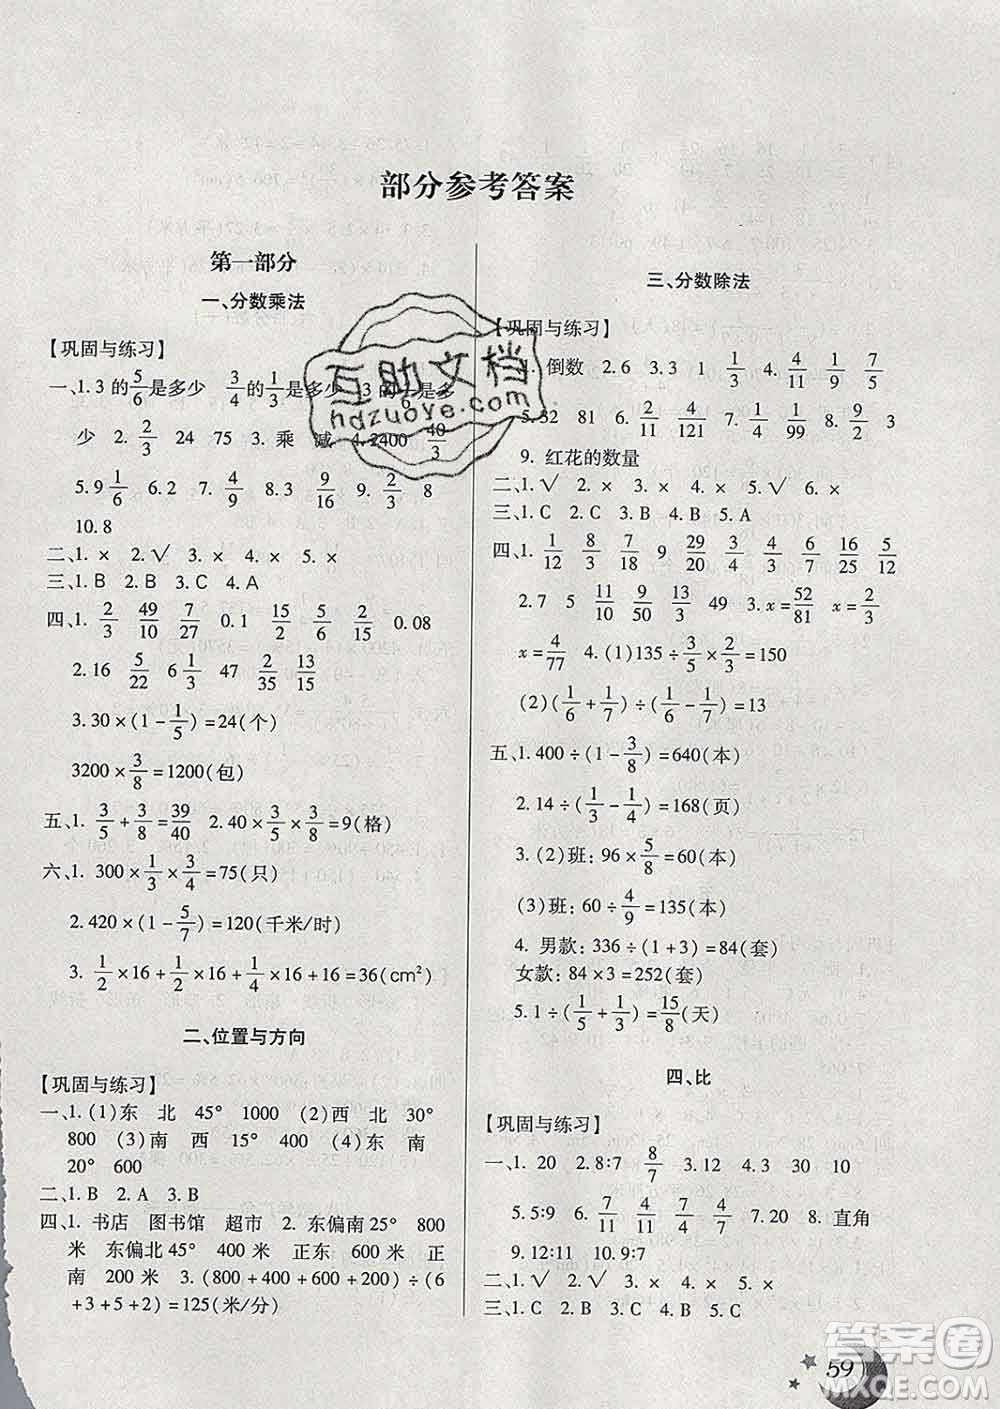 部分参考答案
第一部分
一、分数乘法
【巩固与练习】
一、1. 3 的 5/6 是多少 3/4 的 1/3 是多少 3 的 是多
少 2. 2/3 24 75 3. 乘 减 4. 2400 40/3
5. 9 1/6 6. 2 7. 4/9 8. 9/16 9. 2/3 8
10. 8
二、1. × 2. √ 3. × 4. × 5. ×
三、1. B 2. B 3. C 4. A
四、1. 2/3 49/10 7/27 0.1 15/2 2/15 0.08
2. 16 5/22 6 1/3 47 2/35 13/15
3. 30×(1-1/5)=24(个)
3200×3/8=1200(包)
五、1. 3/5+3/8=39/40 2. 40×3/5×3/8=9(格)
六、1. 300×1/3×3/4=75(只)
2. 420×(1-5/7)=120(千米/时)
3. 1/2×16+1/2×16+1/4×16+16=36(cm²)
二、位置与方向
【巩固与练习】
一、1. (1)东 北 45° 1000 (2)西 北 30°
800 (3)南 西 15° 400 (4)东 南
20° 600
二、1. B 2. A 3. B
四、1. 书店 图书馆 超市 2. 东偏南25° 800
米 东偏北45° 400米 正东 600米 正
南 200米 3. (800+400+600+200)÷(6
+3+5+2)=125(米/分)
三、分数除法
【巩固与练习】
倒数 2. 6 3. 3 1 1/3 4. 4/11 7/5
5. 32 81 6. 2/11 4/121 7. 1/4 1/99 8. 9/2 3
9. 红花的数量
二、1. √ 2. × 3. × 4. × 5. √ 6. ×
三、1. C 2. C 3. B 4. B 5. A
四、1. 1/12 8/3 7/6 9 20/7 4/3 6/4 16/25 5/12
2. 7 5 11/10 9/50 13/3 49 3. x=52/81 x=2/3
x=4/77 4. (1)135÷3/5×2/3=150
(2)(1/6+1/7)÷(1/6-1/7)=13
五、1. 400÷(1-3/8)=640(本)
2. 14÷(1/3-1/4)=168(页)
3. (2)班: 96×5/8=60(本)
(3)班: 60÷4/9=135(本)
4. 男款: 336÷(1+3)=84(套)
女款: 84×3=252(套)
5. 1÷(1/5+1/3)=15/8(天)
四、比
【巩固与练习】
一、1. 20 2. 8:7 8/7 3. 12 4. 3 30 10
5. 5:9 6. 7/11 4/11 7/4 4/7 7. 20 8. 直角
9. 12:11 10. 9:7
二、1. √ 2. √ 3. × 4. × 5. ×
三、1. C 2. B 3. C 4. C 5. B
59
互助文档
hdzuoye.com
答案圈
MXQE.COM